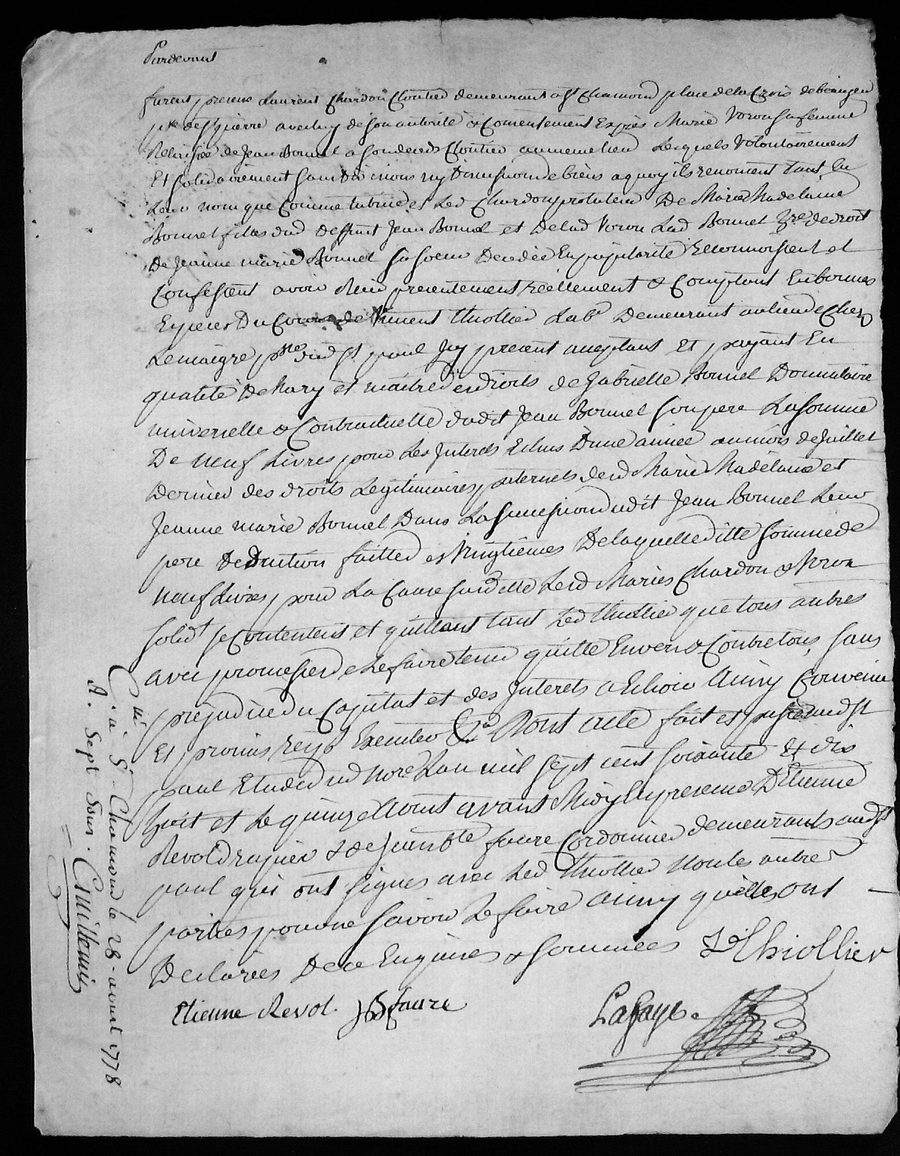 Pardevant
furent presens Laurent Chardon Cloutier demeurant a St Chamond place de la Croix de
psse de St pierre avec luy de son autorité & Consentement Exprès Marie Voron sa femme
Relaissée de Jean Bonnel a son deceds Cloutier au meme lieu Lesquels Volontairement
Et solidairement sans division ny discussion de biens a quoy ils renoncent tant En
Leur nom que Comme tutrice et Led Chardon protuteur De Marie Madelaine
Bonnel filles dud deffunt Jean Bonnel et De lad Voron Lad Bonnel de droit
De Jeanne marie Bonnel sa soeur Decedée En pupilarité reconnoissent et
Confessent avoir Receu presentement réellement & Comptant En bonnes
Especes Du Vincent thiollier Labr Demeurant au lieu de Chez
Lemaigre psse dud St paul Icy present acceptant Et payant En
qualité De mary et maître des droits de Gabrielle Bonnel Donnataire
universelle & Contractuelle dudit Jean Bonnel son pere La somme
De neuf Livres pour Les Interets Echus D'une année au mois de Juillet
Dernier des droits Légitimaires paternels desd Marie Madelaine et
Jeanne marie Bonnel Dans La succession dudit Jean Bonnel Leur
pere Deduction faitte des Vingtiemes De laquelleditte somme de
neuf Livres pour La Cause susditte Lesd Mariés Chardon & Voron
solidt se Contentent et quittent tant Led thiollier que tous autres
avec promesse de Le faire tenir quitte Envers & Contre tous, sans
prejudice du Capital et des Interets a Echoir Ainsy Convenu
Et promis Dont acte fait et passé aud St
paul Etude dud nore L'an mil sept cent soixante & dix
huit et Le quinze Aout avant Midy En presence D'Etienne
Revol & de Jean bte faure Cordonnier demeurants aud St
paul qui ont signés avec Led thiollier Non les autres
parties pour ne savoir Le faire Ainsy qu'elles ont
Declarées De ce Enquises & sommées J Vt thiollier
Etienne Revol JB faure Lafaye.
Clé a St Chamond le 28 aoust 1778
R. Sept sous.